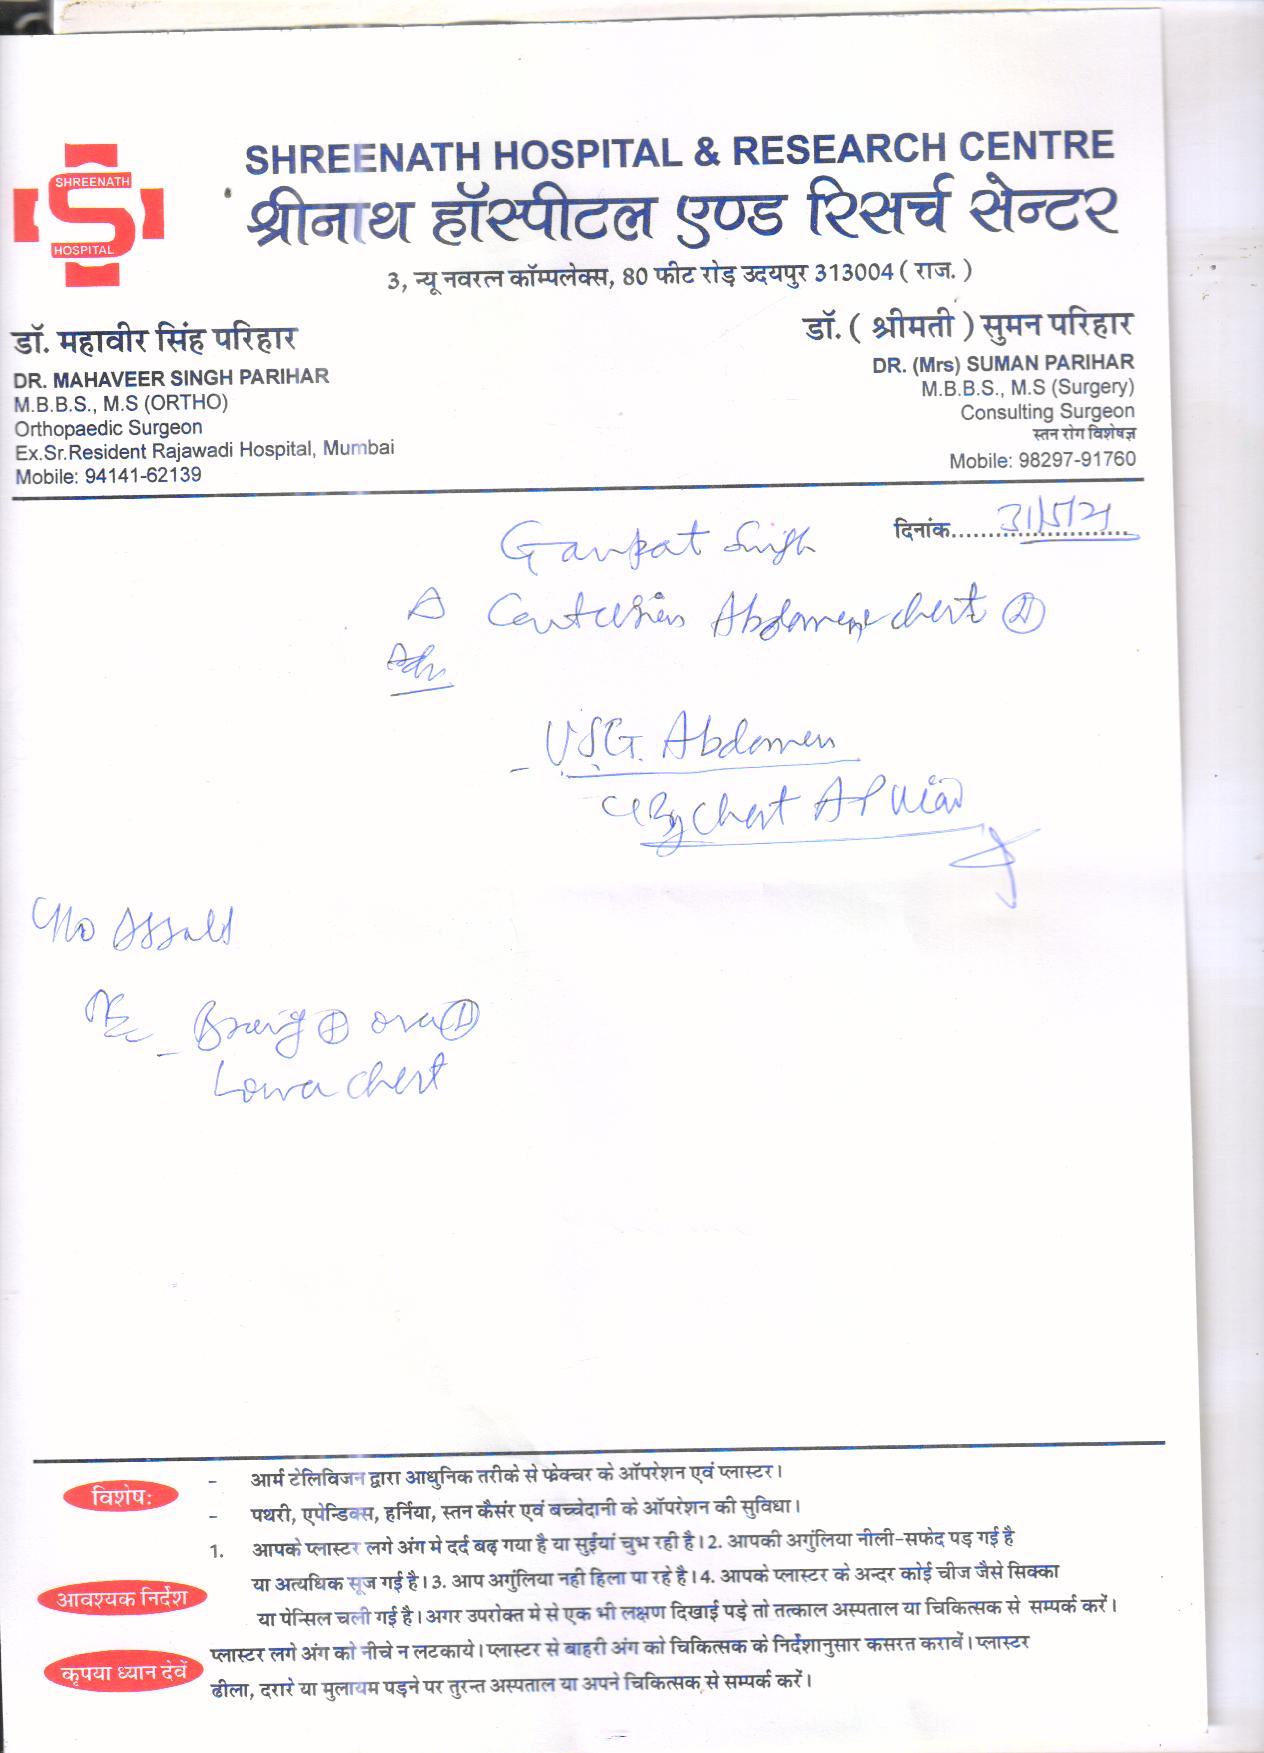 SHREENATH
HOSPITAL
SHREENATH HOSPITAL & RESEARCH CENTRE
श्रीनाथ हॉस्पीटल एण्ड रिसर्च सेन्टर
3, न्यू नवरत्न कॉम्पलेक्स, 80 फीट रोड़ उदयपुर 313004 ( राज. )
डॉ. महावीर सिंह परिहार
DR. MAHAVEER SINGH PARIHAR
M.B.B.S., M.S (ORTHO)
Orthopaedic Surgeon
Ex.Sr.Resident Rajawadi Hospital, Mumbai
Mobile: 94141-62139
डॉ. ( श्रीमती ) सुमन परिहार
DR. (Mrs) SUMAN PARIHAR
M.B.B.S., M.S (Surgery)
Consulting Surgeon
स्तन रोग विशेषज्ञ
Mobile: 98297-91760
दिनांक 31/5/21
Ganpat Singh
Δ Contusion Abdomen chest
Adv
- USG Abdomen
chest AP View
H/o Assault
over
Lower chest
विशेषः
- आर्म टेलिविजन द्वारा आधुनिक तरीके से फ्रेक्चर के ऑपरेशन एवं प्लास्टर।
- पथरी, एपेन्डिक्स, हर्निया, स्तन कैसंर एवं बच्चेदानी के ऑपरेशन की सुविधा।
आवश्यक निर्देश
1. आपके प्लास्टर लगे अंग मे दर्द बढ़ गया है या सुईयां चुभ रही है। 2. आपकी अगुंलिया नीली-सफेद पड़ गई है
या अत्यधिक सूज गई है। 3. आप अगुंलिया नही हिला पा रहे है। 4. आपके प्लास्टर के अन्दर कोई चीज जैसे सिक्का
या पेन्सिल चली गई है। अगर उपरोक्त मे से एक भी लक्षण दिखाई पड़े तो तत्काल अस्पताल या चिकित्सक से सम्पर्क करें।
कृपया ध्यान देवें
प्लास्टर लगे अंग को नीचे न लटकाये। प्लास्टर से बाहरी अंग को चिकित्सक के निर्देशानुसार कसरत करावें। प्लास्टर
ढीला, दरारे या मुलायम पड़ने पर तुरन्त अस्पताल या अपने चिकित्सक से सम्पर्क करें।